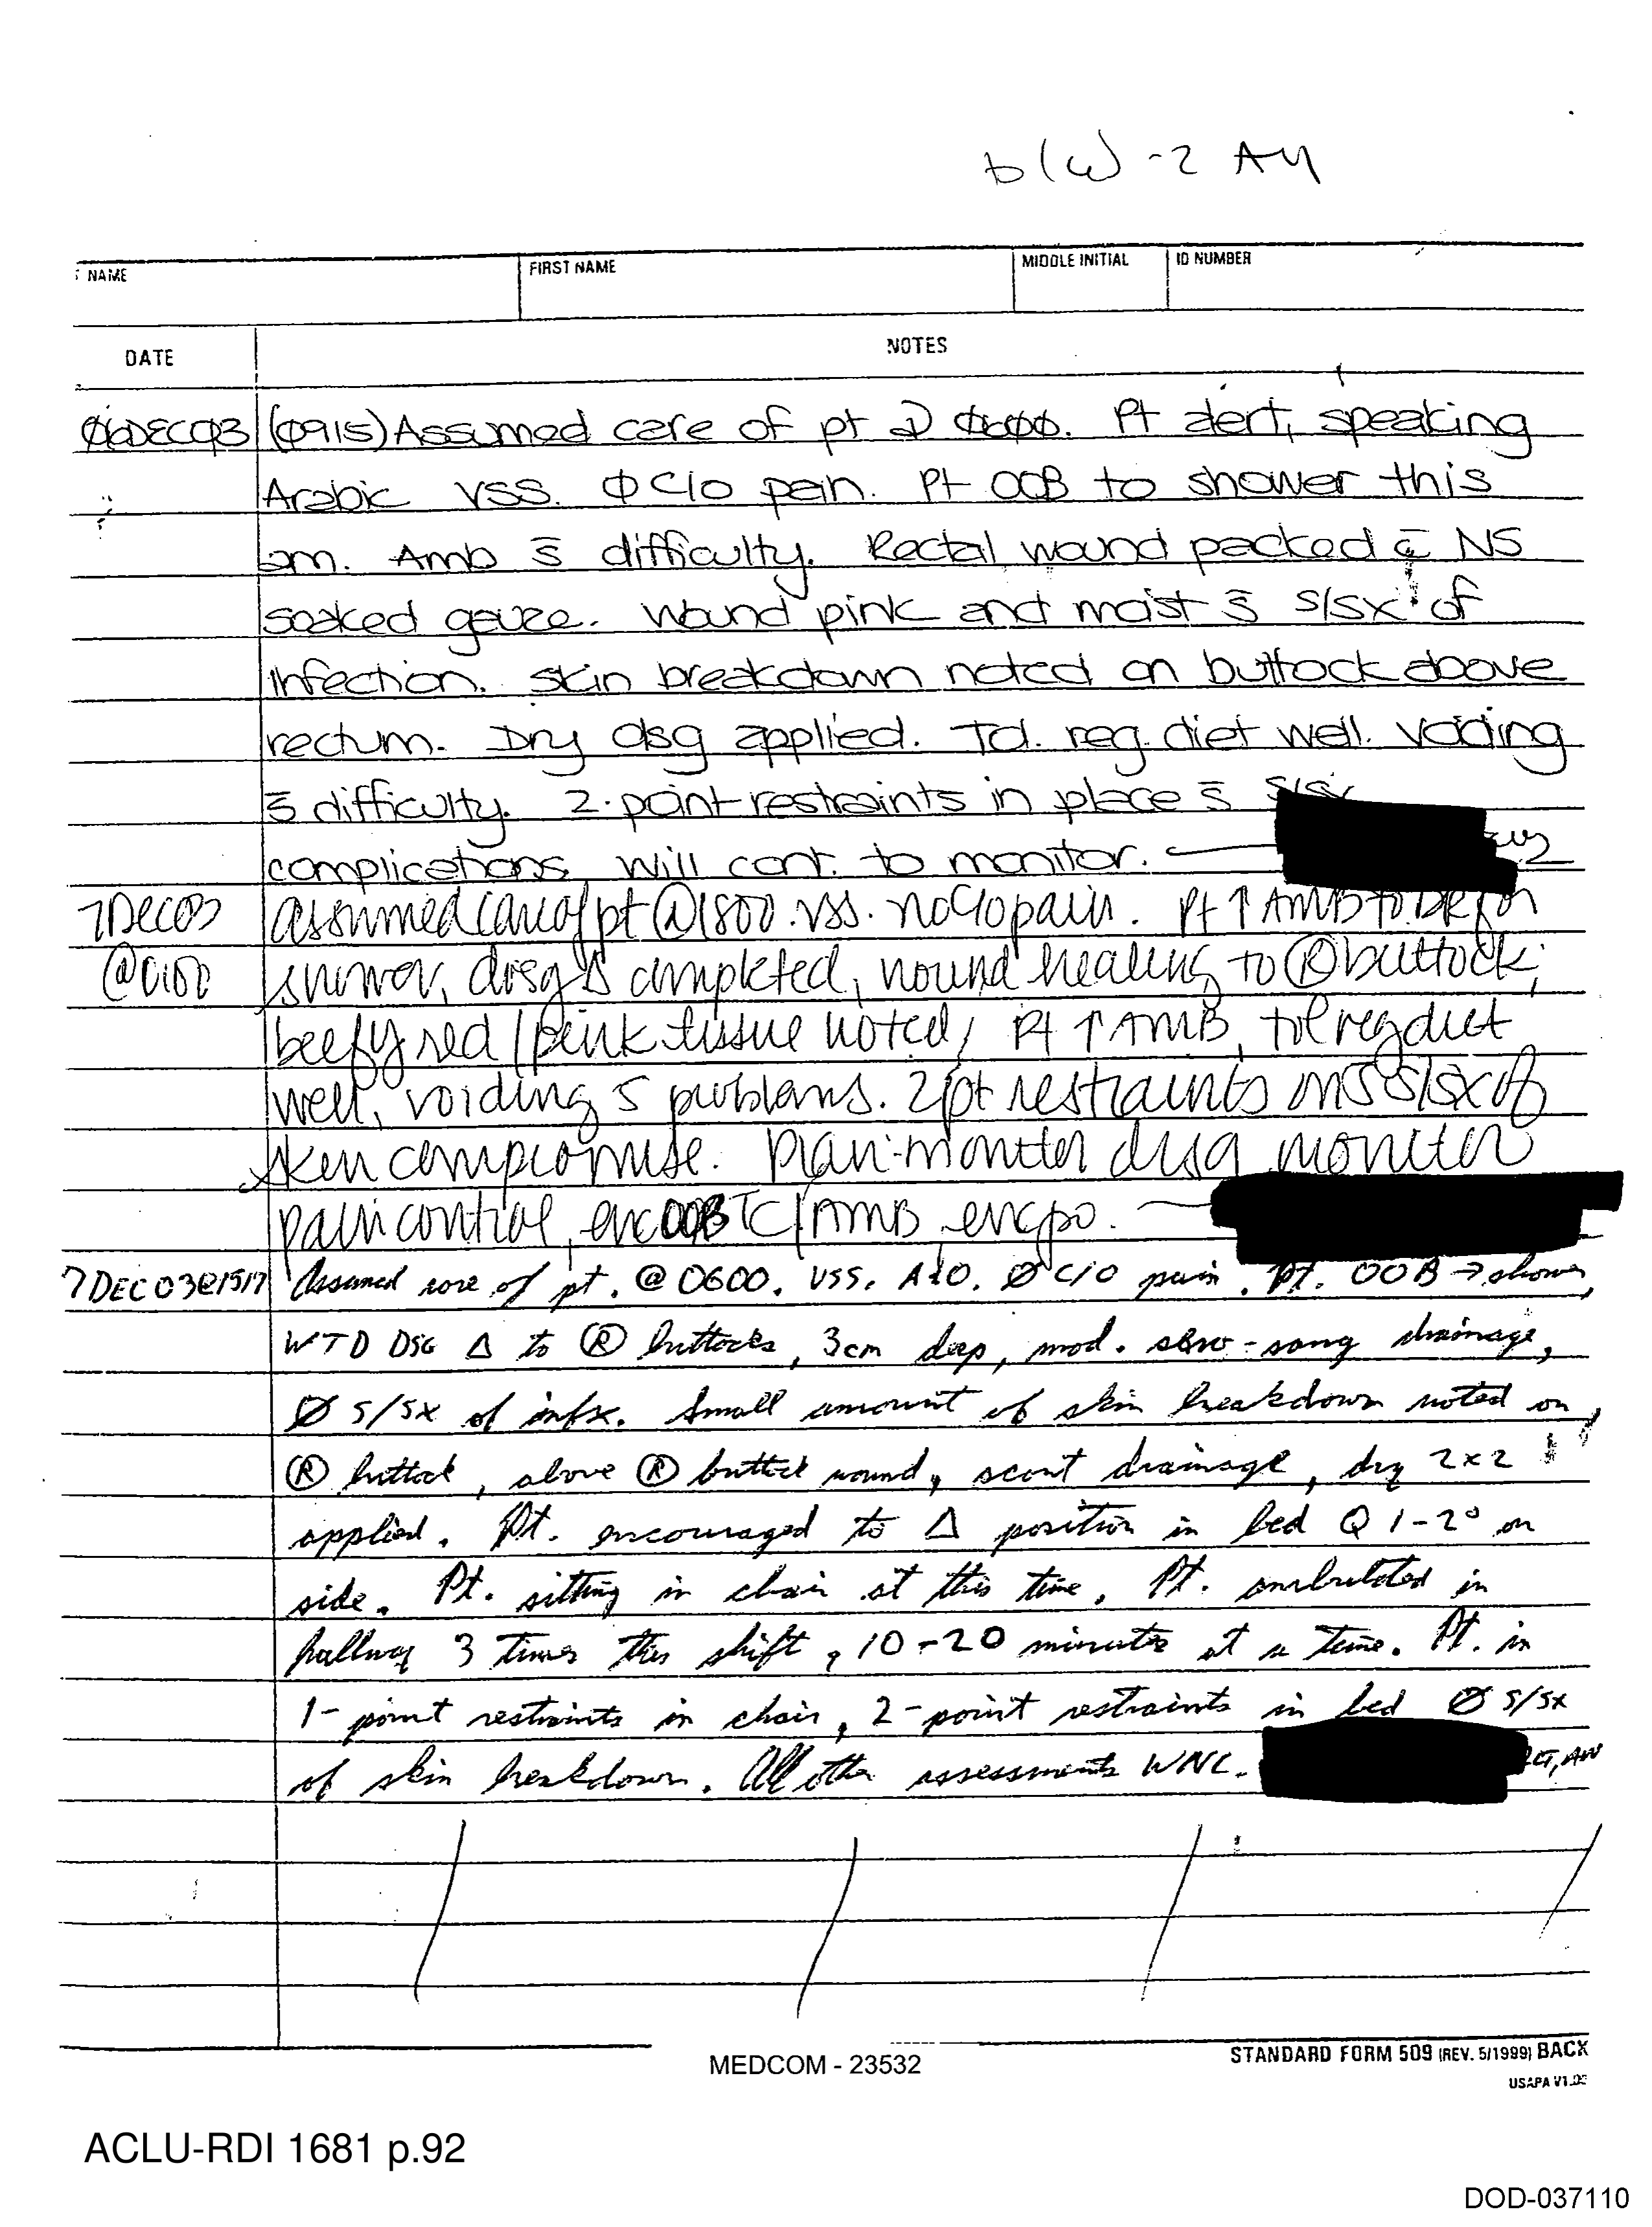 b(6)-2 All
NAME
FIRST NAME
MIDDLE INITIAL
ID NUMBER
DATE
NOTES
06DEC03 (0915) Assumed care of pt @ 0600. Pt alert, speaking
Arabic VSS. Ø C/o pain. Pt OOB to shower this
am. Amb s̄ difficulty. Rectal wound packed c̄ NS
soaked gauze. Wound pink and moist s̄ s/sx of
infection. Skin breakdown noted on buttock above
rectum. Dry dsg applied. Tol. reg. diet well. Voiding
s̄ difficulty. 2-point restraints in place s̄ s/sx
complications. Will cont. to monitor.
7Dec03 assumed care of pt @ 1800. VSS. no c/o pain. Pt ↑ AMB to BR for
@0100 shower, drsg Δ completed, wound healing to Ⓡ buttock;
beefy red / pink tissue noted, Pt ↑ AMB, tol reg diet
well, voiding s̄ problems. 2pt restraints on s̄ s/sx of
skin compromise. Plan: monitor drsg monitor
pain control, enc OOB TC/AMB, enc po.
7DEC03@1517 Assumed care of pt. @ 0600. VSS. A&O. Ø C/O pain. Pt. OOB → shower,
WTD DSG Δ to Ⓡ buttocks, 3cm deep, mod. sero-sang drainage,
Ø S/SX of infx. Small amount of skin breakdown noted on
Ⓡ buttock, above Ⓡ buttock wound, scant drainage, dry 2x2
applied. Pt. encouraged to Δ position in bed Q 1-2° on
side. Pt. sitting in chair at this time. Pt. ambulated in
hallway 3 times this shift, 10-20 minutes at a time. Pt. in
1-point restraints in chair, 2-point restraints in bed Ø S/SX
of skin breakdown. All other assessments WNL.
MEDCOM - 23532
STANDARD FORM 509 (REV. 5/1999) BACK
USAPA V1.00
ACLU-RDI 1681 p.92
DOD-037110